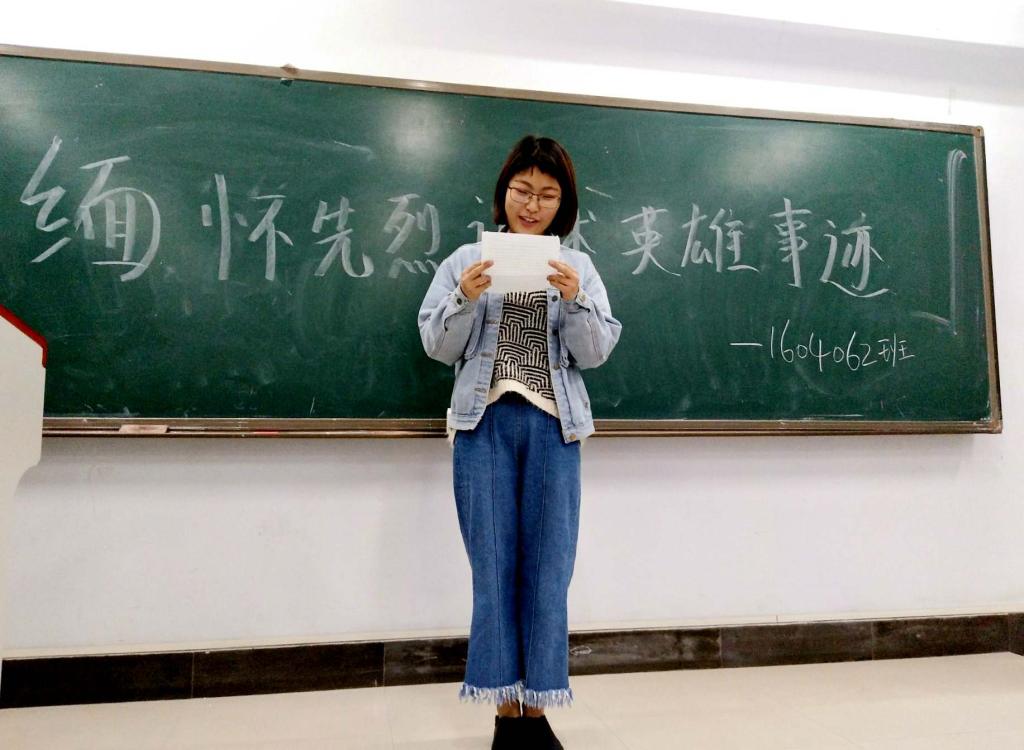 缅怀先烈 述英雄事迹
—1604062班